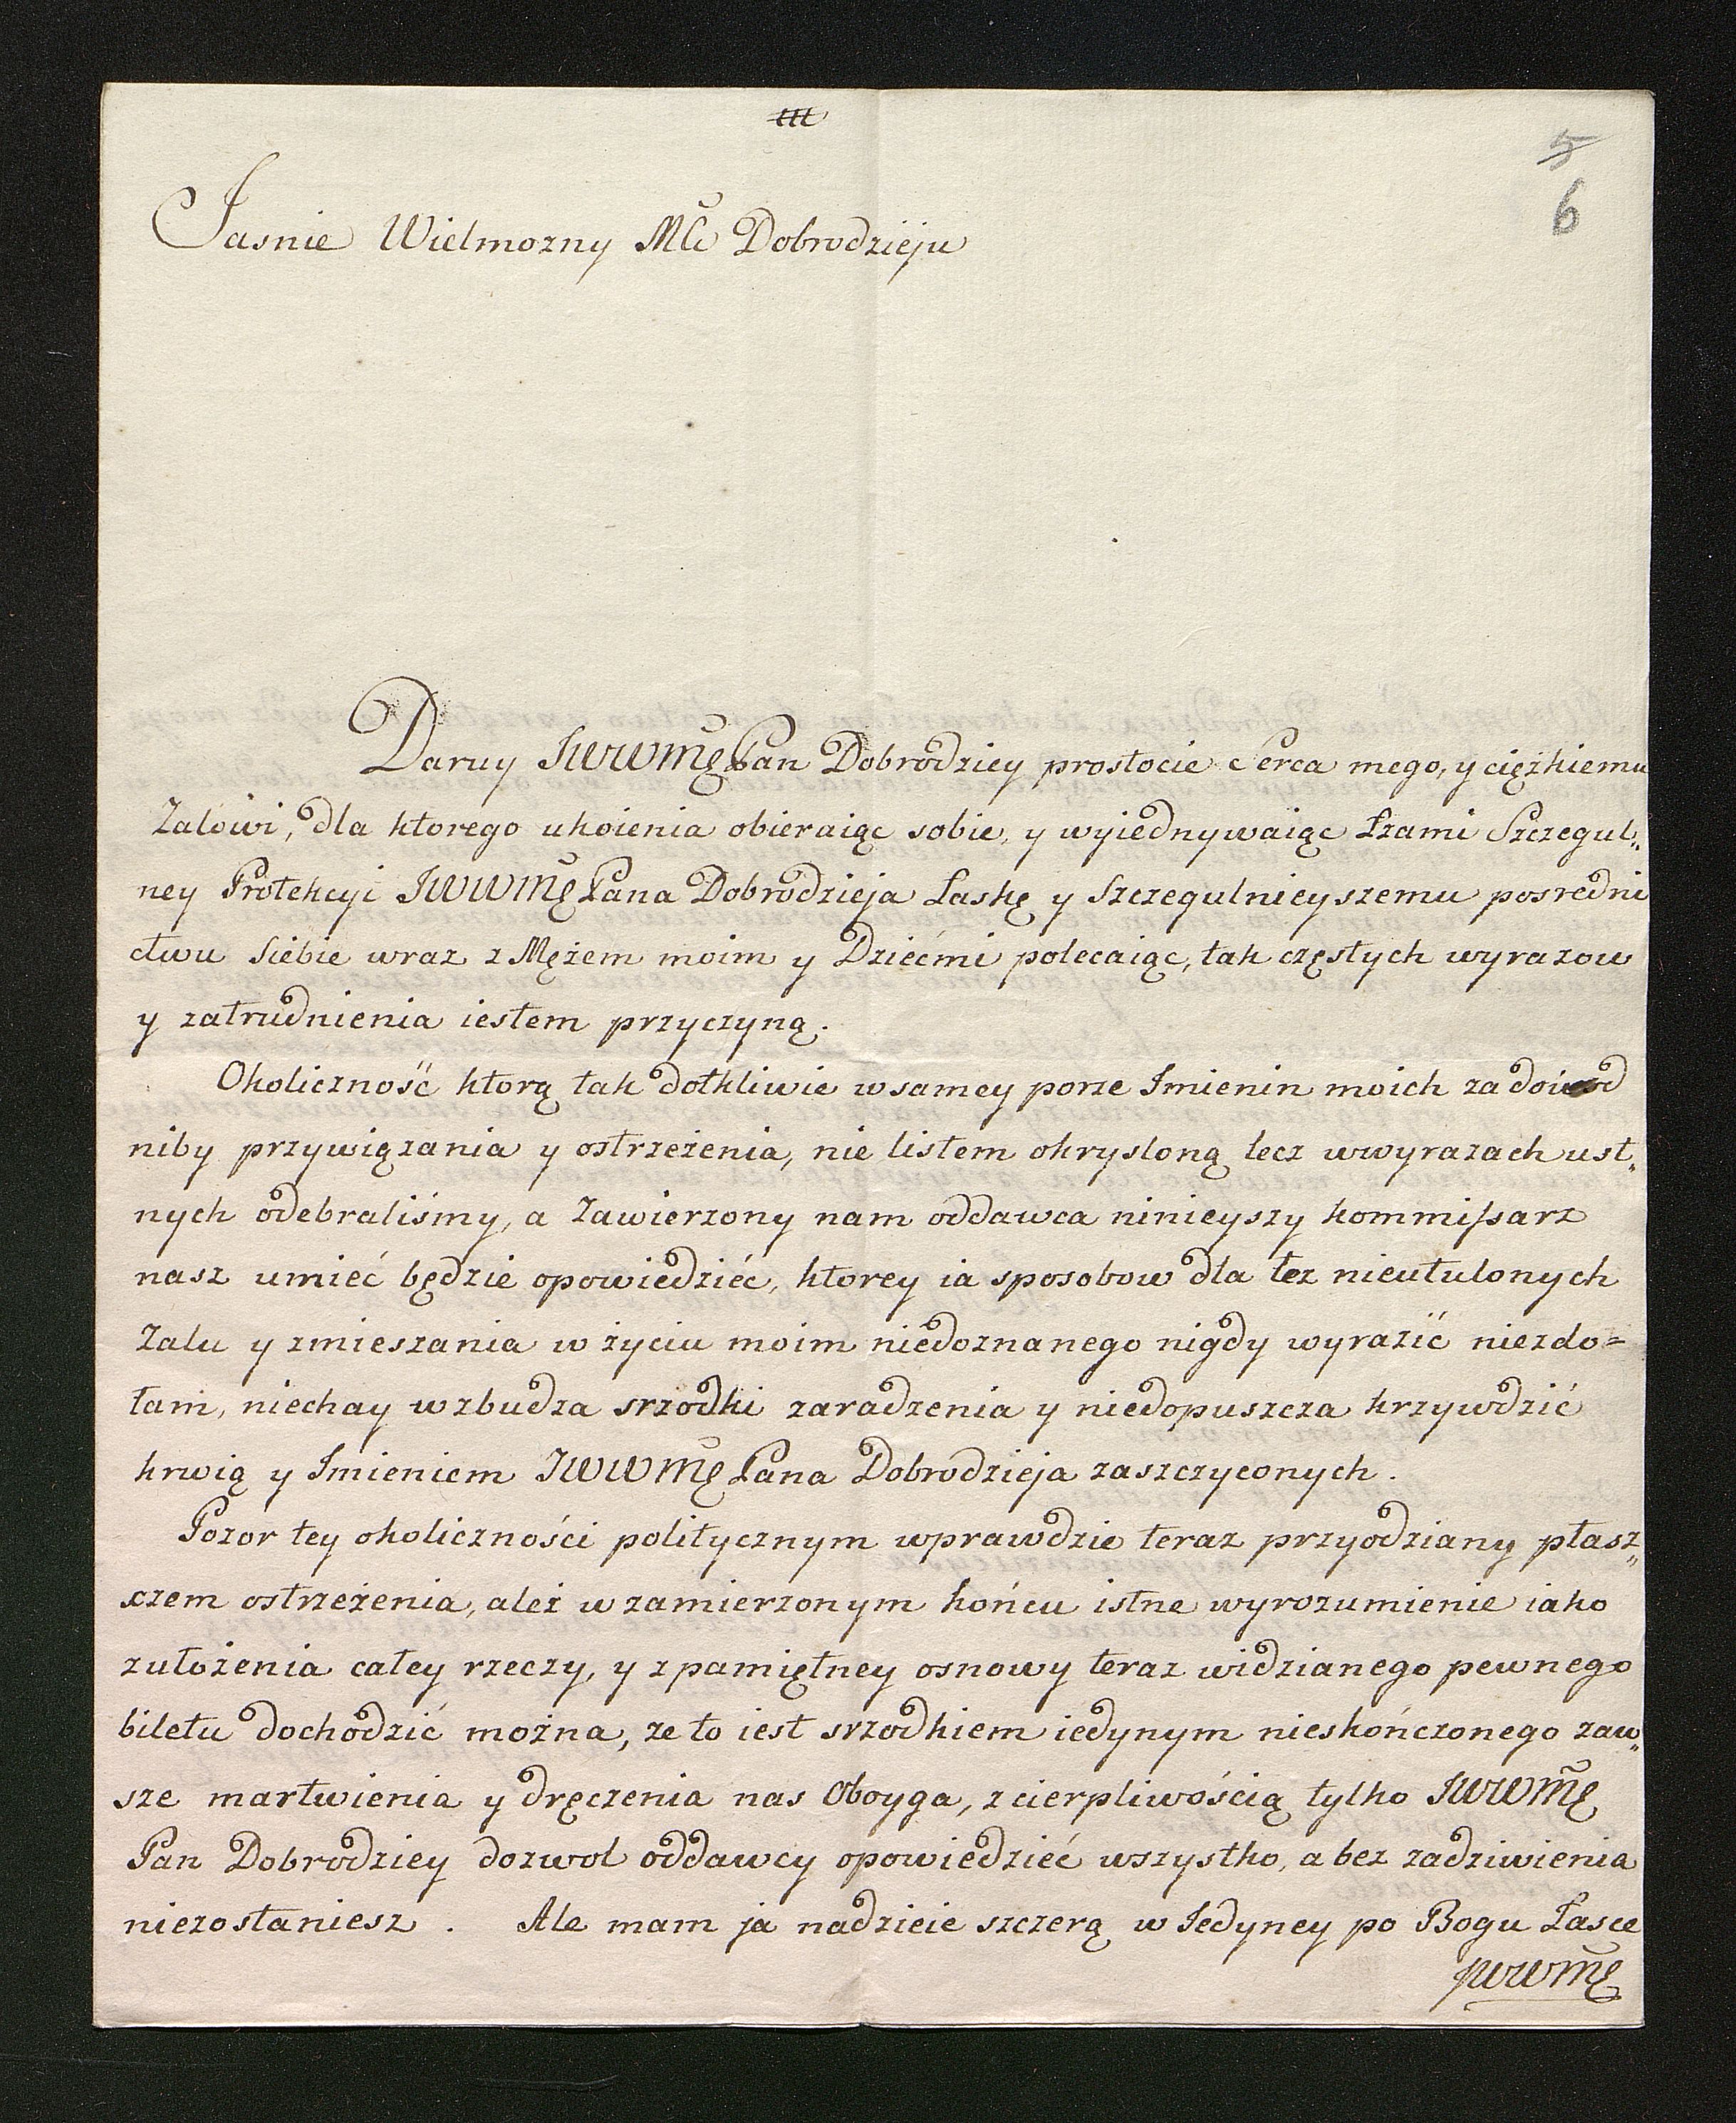 5
6
Jasnie Wielmozny Mci Dobrodzieju
Daruy JWWMę Pan Dobrodziey prostocie Serca mego, y cięzkiemu
Zalowi, dla ktorego ukoienia obieraiąc sobie, y wyiednywaiąc Łzami Szczegul„
ney Protekcyi JWWMę Pana Dobrodzieja Laskę y Szczegulnieyszemu posredni
ctwu Siebie wraz z Mężem moim y Dziećmi polecaiąc, tak częstych wyrazow
y zatrudnienia iestem przyczyną.
Okoliczność ktorą tak dotkliwie w samey porze Imienin moich za dowod
niby przywiązania y ostrzeżenia, nie listem okrysloną lecz w wyrazach ust„
nych odebraliśmy, a Zawierzony nam oddawca ninieyszy kommissarz
nasz umieć będzie opowiedzieć, ktorey ia sposobow dla łez nieutulonych
Zalu y zmieszania w życiu moim niedoznanego nigdy wyrazić niezdo=
łam, niechay wzbudza srzodki zaradzenia y niedopuszcza krzywdzić
krwią y Imieniem JWWMę Pana Dobrodzieja zaszczyconych.
Pozor tey okoliczności politycznym wprawdzie teraz przyodziany płasz„
czem ostrzeżenia, ależ w zamierzonym końcu istne wyrozumienie iako
zułożenia całey rzeczy, y z pamiętney osnowy teraz widzianego pewnego
biletu dochodzić można, ze to iest srzodkiem iedynym nieskończonego zaw„
sze martwienia y dręczenia nas Oboyga, z cierpliwością tylko JWWMę
Pan Dobrodziey dozwol oddawcy opowiedzieć wszystko, a bez zadziwienia
niezostaniesz. Ale mam ja nadzieie szczerą w Iedyney po Bogu Łasce
JWWMę